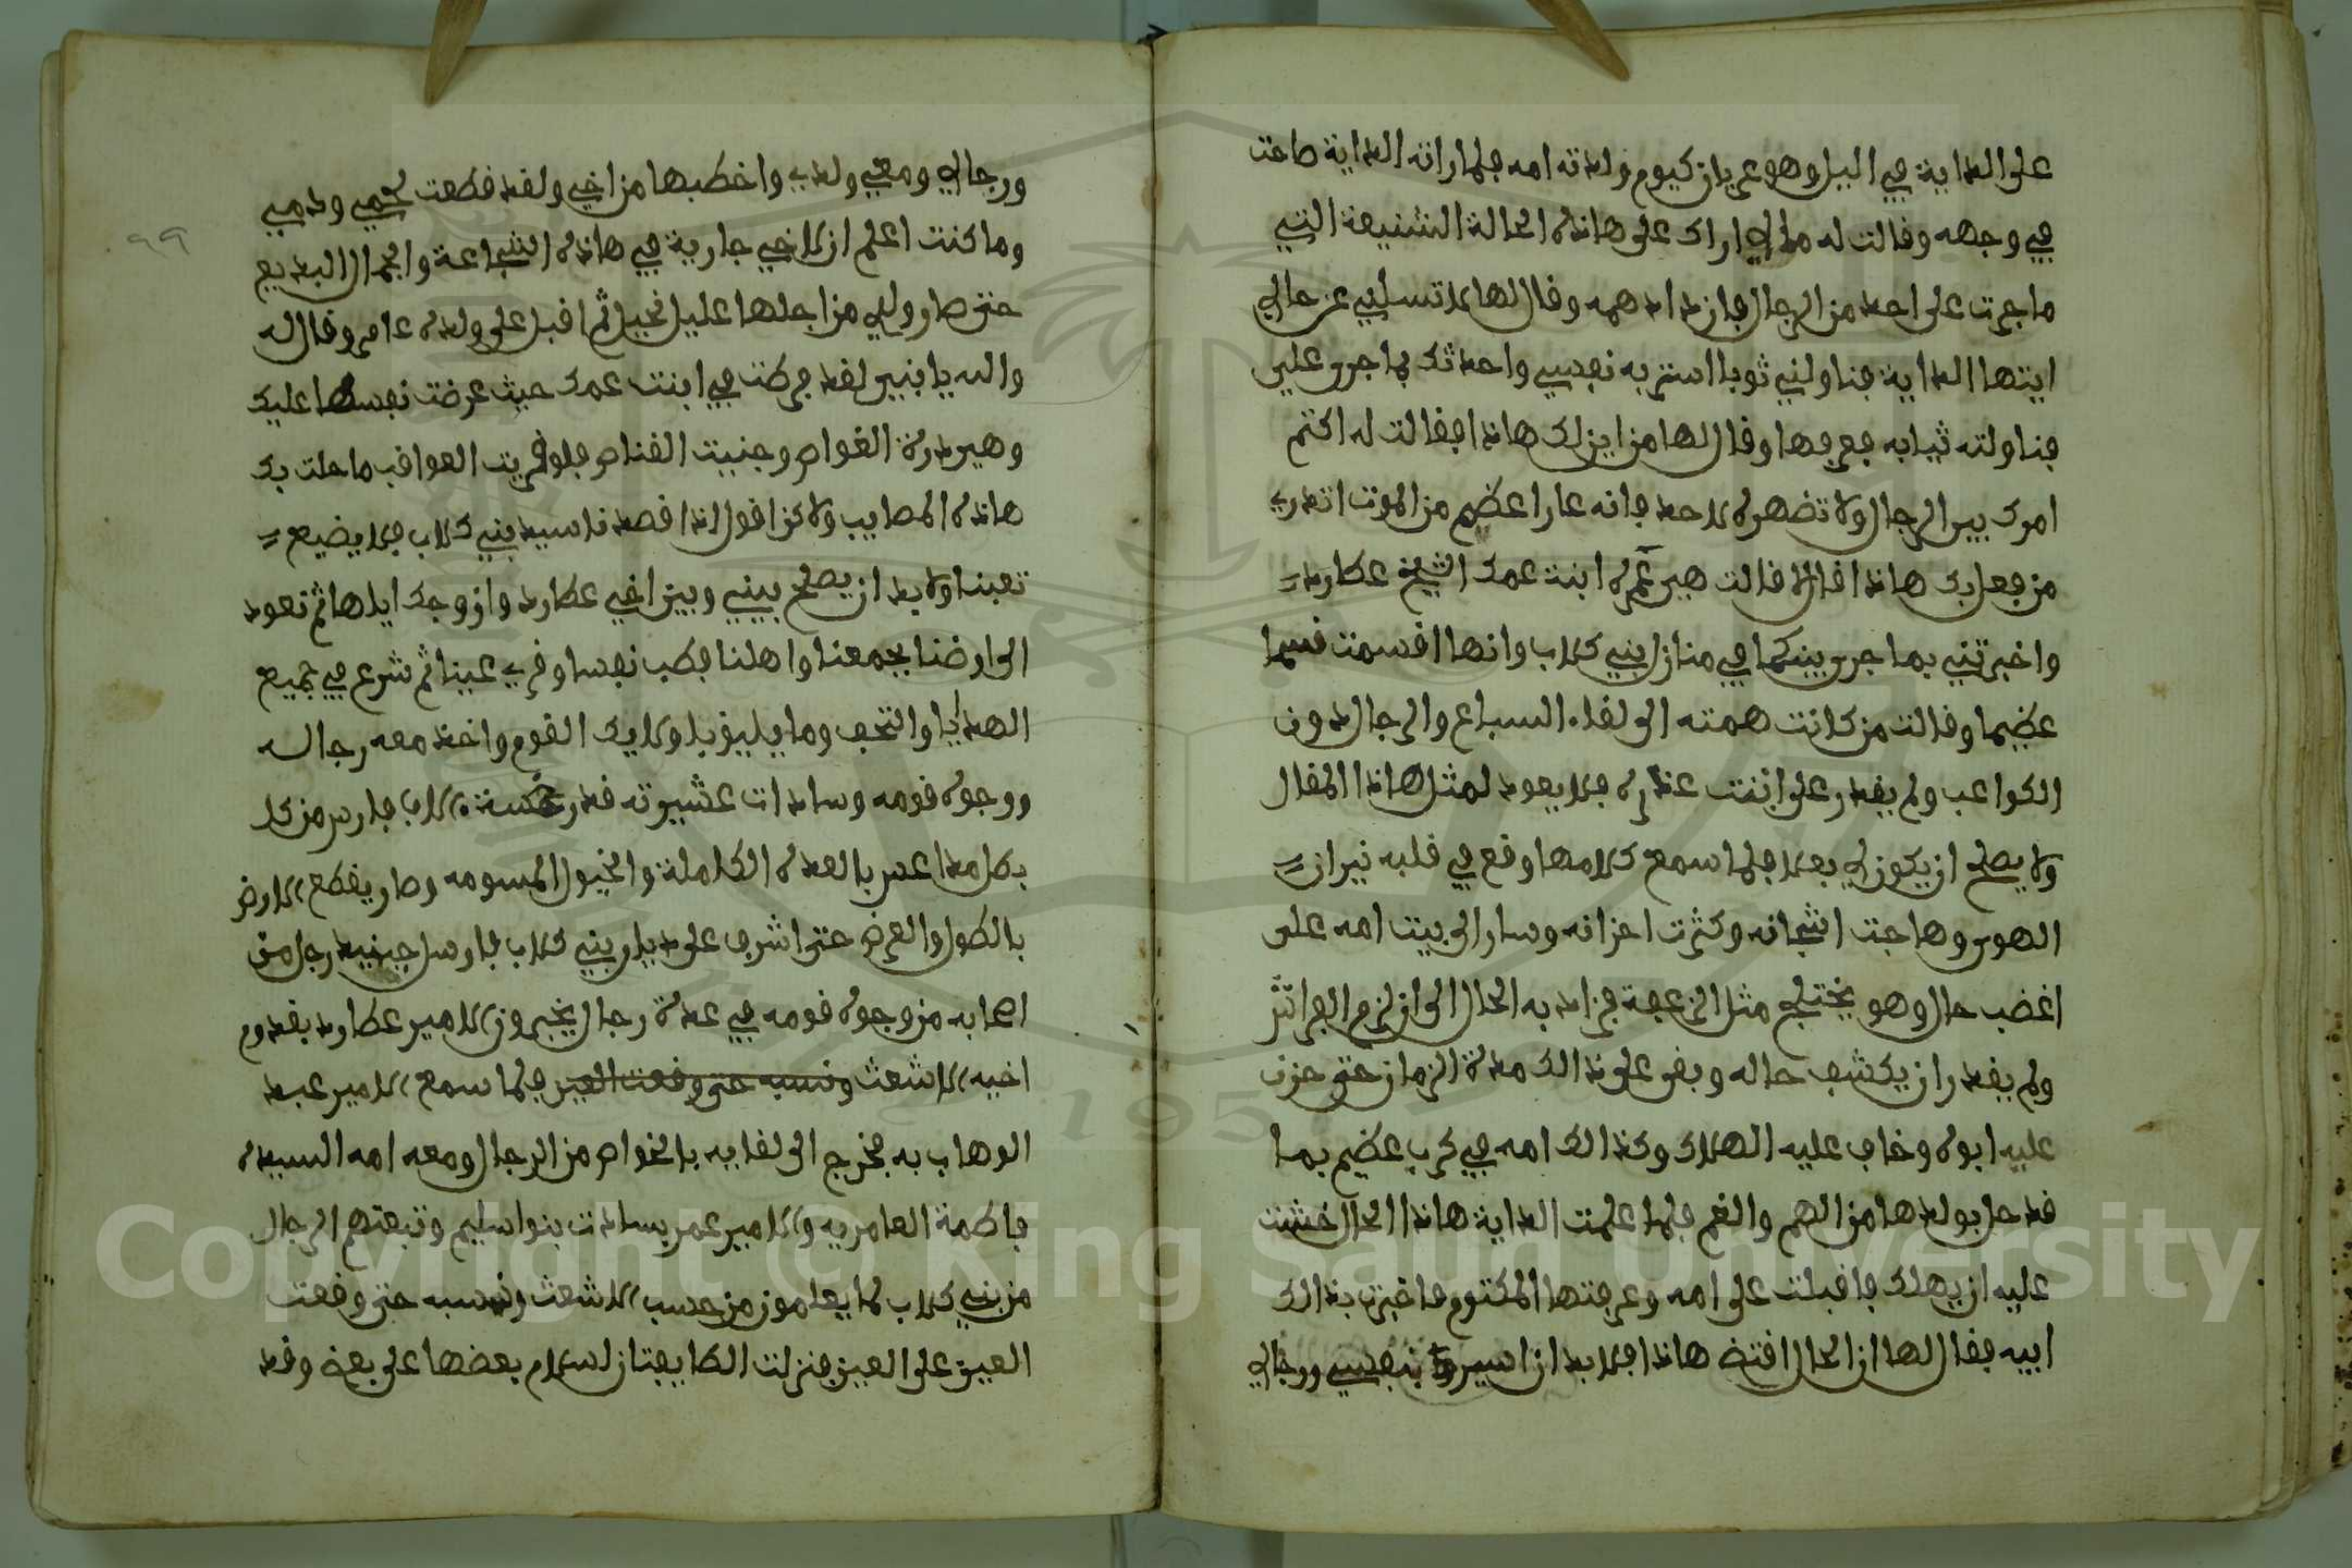 على الداية في اليل وهو عريان كيوم ولدته امه فلما راته الداية صاحت
في وجهه وقالت له مالي اراك على هاذه الحالة الشنيعة التي
ما جرت على احد من الرجال فازداد همه وقال لها لا تسأليني عن حالي
ايتها الداية فناوليني ثوبا استر به نفسي واحدثك بما جرى علي
فناولته ثيابه فعرفها وقال لها من اين لك هاذا فقالت له اكتم
امرك بين الرجال ولا تضهره لاحد فانه عارا عضيم من الموت اتدري
من فعل بك هاذا قال لا قالت هي عمره ابنت عمك الشيخ عطارد
واخبرتني بما جرى بينكما في منازل بني كلاب وانها اقسمت قسما
عضيما وقالت من كانت همته الى لقاء السباع والرجال دون
الكواعب ولم يقدر على انثت عذره فلا يعود لمثل هاذا المقال
ولا يصلح ان يكون لي بعلا فلما سمع كلامها وقع في قلبه نيران
الهوى وهاجت اشجانه وكثرت احزانه وسار الى بيت امه على
اغضب حال وهو يختلج مثل الزعفة فزاد به الحال الى ان لزم الفراش
ولم يقدر ان يكشف حاله وبقى على ذالك مدة الزمان حتى حزن
عليه ابوه وخاف عليه الهلاك وكذالك امه في كرب عضيم بما
قد حل بولدها من الهم والغم فلما علمت الداية هاذا الحال خشت
عليه ان يهلك فاقبلت على امه وعرفتها المكتوم فاخبرت بذالك
ابيه فقال لها ان الحال اقتضى هاذا فلا بد ان اسير بنفسي ورجالي
ورجالي ومعي ولدي واخطبها من اخي ولقد قطعت لحمي ودمي
وما كنت اعلم ان لاخي جارية في هاذه الشجاعة والجمال البديع
حتى صار ولدي من اجلها عليل نحيل ثم اقبل على ولده عامر وقال له
والله يا بني لقد فرطت في ابنت عمك حيث عرضت نفسها عليك
وهي درة الغواص وجنيت القناص فلو قريت العواقب ما حلت بك
هاذه المصايب ولاكن اقول اذا قصدنا سيد بني كلاب فلا يضيع
تعبنا ولا بد ان يصلح بيني وبين اخي عطارد وازوجك اياها ثم نعود
الى ارضنا بجمعنا واهلنا فطب نفسا وقري عينا ثم شرع في جميع
الهدايا والتحف وما يليق بلوكايك القوم واخذ معه رجاله
ووجوه قومه وسادات عشيرته قدر خمسة الاف فارس من كل
بطل مداعس بالعدة الكاملة والخيول المسومه وصار يقطع الارض
بالطول والعرض حتى اشرف على ديار بني كلاب فارسل جنيد رجل من
اصحابه من وجوه قومه في عدة رجال يخبرون الامير عطارد بقدوم
اخيه الاشعث ونسبه حتى وقعت العين فلما سمع الامير عبد
الوهاب به فخرج الى لقايه بالخواص من الرجال ومعه امه السيده
فاطمة العامريه والامير عمر بسادات بنوا سليم وتبعتهم الرجال
من بني كلاب لما يعلمون من حسب الاشعث ونسبه حتى وقعت
العين على العين فنزلت الطايفتان لسلام بعضها على بعض وقد
٩٩